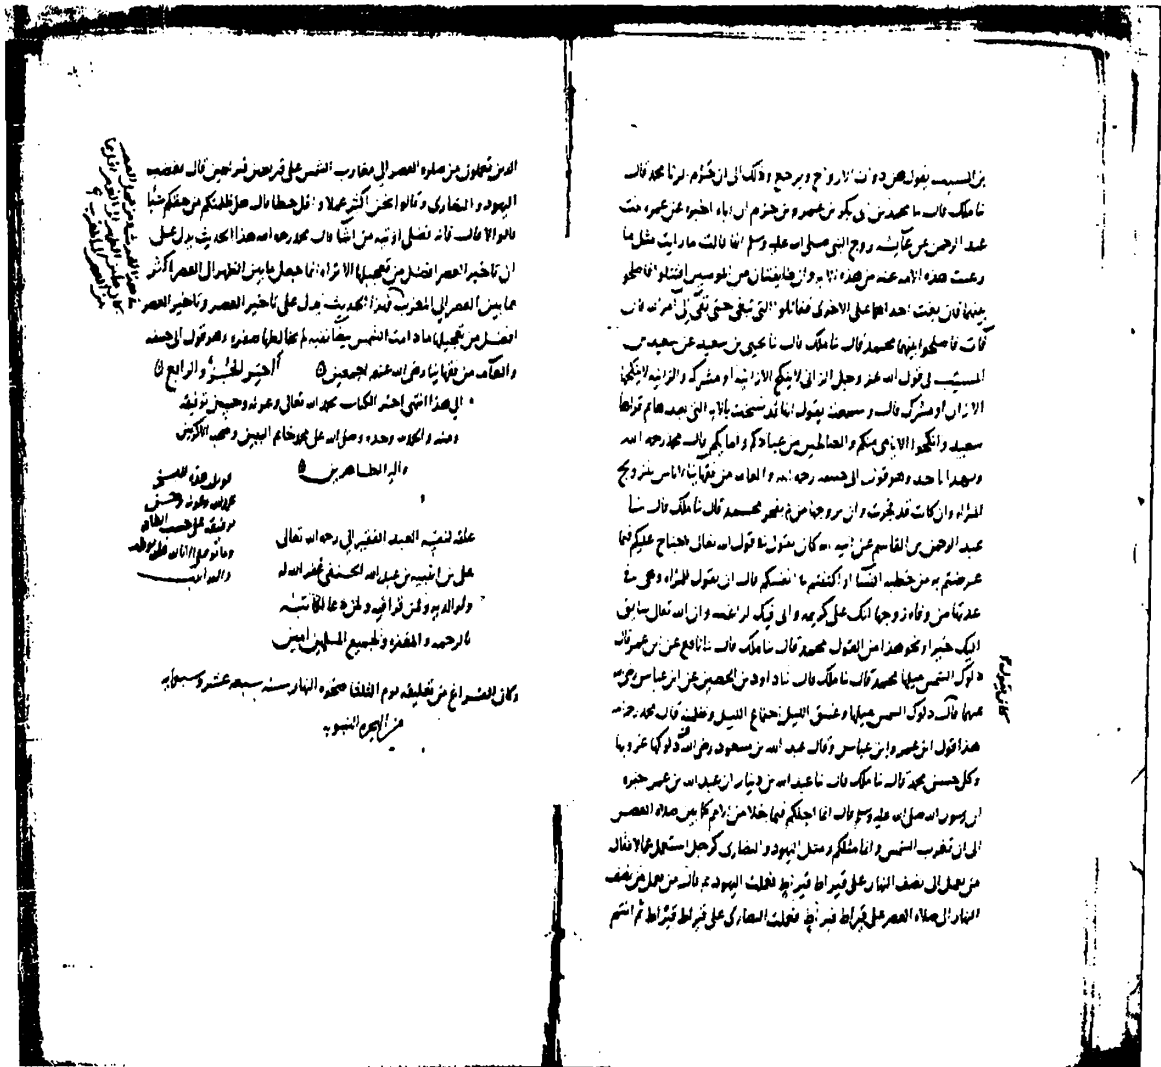 بن المسيب يقول هن ذوات الازواج ويرجع ذلك الى ان حرم الزنا محمد قال
نا ملك قال نا محمد بن ابى بكر بن عمرو بن حزم ان اباه اخبره عن عمره بنت
عبد الرحمن عن عايشه زوج النبى صلى الله عليه وسلم انها قالت ما رايت مثل ما
رغبت هذه الامه عنه من هذه الايه وان طايفتان من المومنين اقتتلوا فاصلحوا
بينهما فان بغت احداهما على الاخرى فقاتلوا التى تبغى حتى تفئ الى امر الله فان
فآت فاصلحوا بينهما محمد قال نا ملك قال نا يحيى بن سعيد عن سعيد بن
المسيب فى قول الله عز وجل الزانى لا ينكح الا زانيه او مشركه والزانيه لا ينكحها
الا زان او مشرك قال وسمعته يقول انها قد نسخت بالايه التى بعدها ثم قراها
سعيد وانكحوا الايامى منكم والصالحين من عبادكم وامايكم قال محمد رحمه الله
وبهذا ناخذ وهو قول ابى حنيفه رحمه الله والعامه من فقهاينا لا باس بتزويج
المراه وان كانت قد فجرت وان يتزوجها من لم يفجر محمد قال نا ملك قال نا
عبد الرحمن بن القاسم عن ابيه انه كان يقول فى قول الله تعالى لا جناح عليكم فيما
عرضتم به من خطبه النسا او اكننتم فى انفسكم قال ان يقول للمراه وهى فى
عدتها من وفاه زوجها انك على كريمه وانى فيك لراغب وان الله تعالى سايق
اليك خيرا ونحو هذا من القول محمد قال نا ملك قال نا نافع عن بن عمر قال
دلوك الشمس ميلها محمد قال نا ملك قال نا داود بن الحصين عن ابن عباس رضى الله
عنهما قال دلوك الشمس ميلها وغسق الليل اجتماع الليل وظلمته قال محمد رحمه الله
هذا قول ابن عمر وابن عباس وقال عبد الله بن مسعود رضى الله عنه دلوكها غروبها
وكل حسن محمد قال نا ملك قال نا عبد الله بن دينار ان عبد الله بن عمر اخبره
ان رسول الله صلى الله عليه وسلم قال انما اجلكم فيما خلا من الامم كما بين صلاه العصر
الى ان تغرب الشمس وانما مثلكم ومثل اليهود والنصارى كرجل استعمل عمالا فقال
من يعمل الى نصف النهار على قيراط قيراط فعملت اليهود ثم قال من يعمل من نصف
النهار الى صلاه العصر على قيراط قيراط فعملت النصارى على قيراط قيراط ثم انتم
كان يقول
الذين تعملون من صلوه العصر الى مغارب الشمس على قيراطين قيراطين قال فغضب
اليهود والنصارى وقالوا نحن اكثر عملا واقل عطا قال هل ظلمتكم من حقكم شيا
قالوا لا قال فانه فضلى اوتيه من اشا قال محمد رحمه الله هذا الحديث يدل على
ان تاخير العصر افضل من تعجيلها الا ترى انه انما جعل ما بين الظهر الى العصر اكثر
مما بين العصر الى المغرب فهذا الحديث يدل على تاخير العصر وتاخير العصر
افضل من تعجيلها ما دامت الشمس بيضا نقيه لم تخالطها صفره وهو قول ابى حنيفه
والعامه من فقهاينا رضى الله عنهم اجمعين اخر الجزو الرابع
الى هذا انتهى اخر الكتاب بحمد الله تعالى وعونه وحسن توفيقه
ومنه والحمد لله وحده وصلى الله على محمد خاتم النبيين وصحبه الاكرمين
واله الطاهرين
علقه لنفسه العبد الفقير الى رحمه الله تعالى
على بن عبد الله الحنفى غفر الله له
ولوالديه ولمن قرا فيه ولمن دعا لكاتبه
بالرحمه والمغفره ولجميع المسلمين امين
وكان الفراغ من تعليقه يوم الثلثا ضحوه النهار سنه سبعه عشر وسبعمايه
من الهجره النبويه